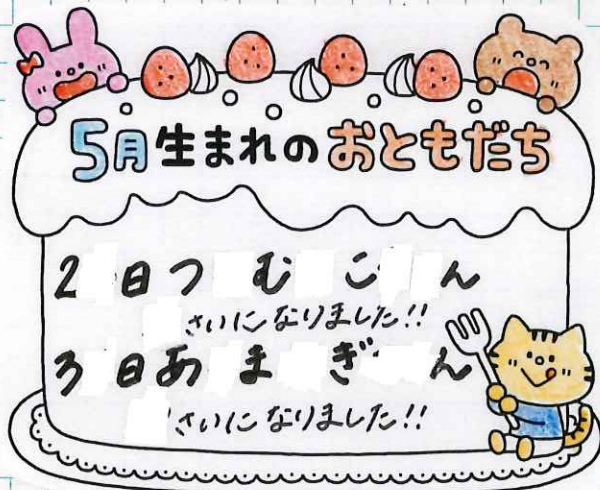 5月生まれのおともだち
2 日つ む こ ん
さいになりました!!
3 日あ ま ぎ ん
さいになりました!!